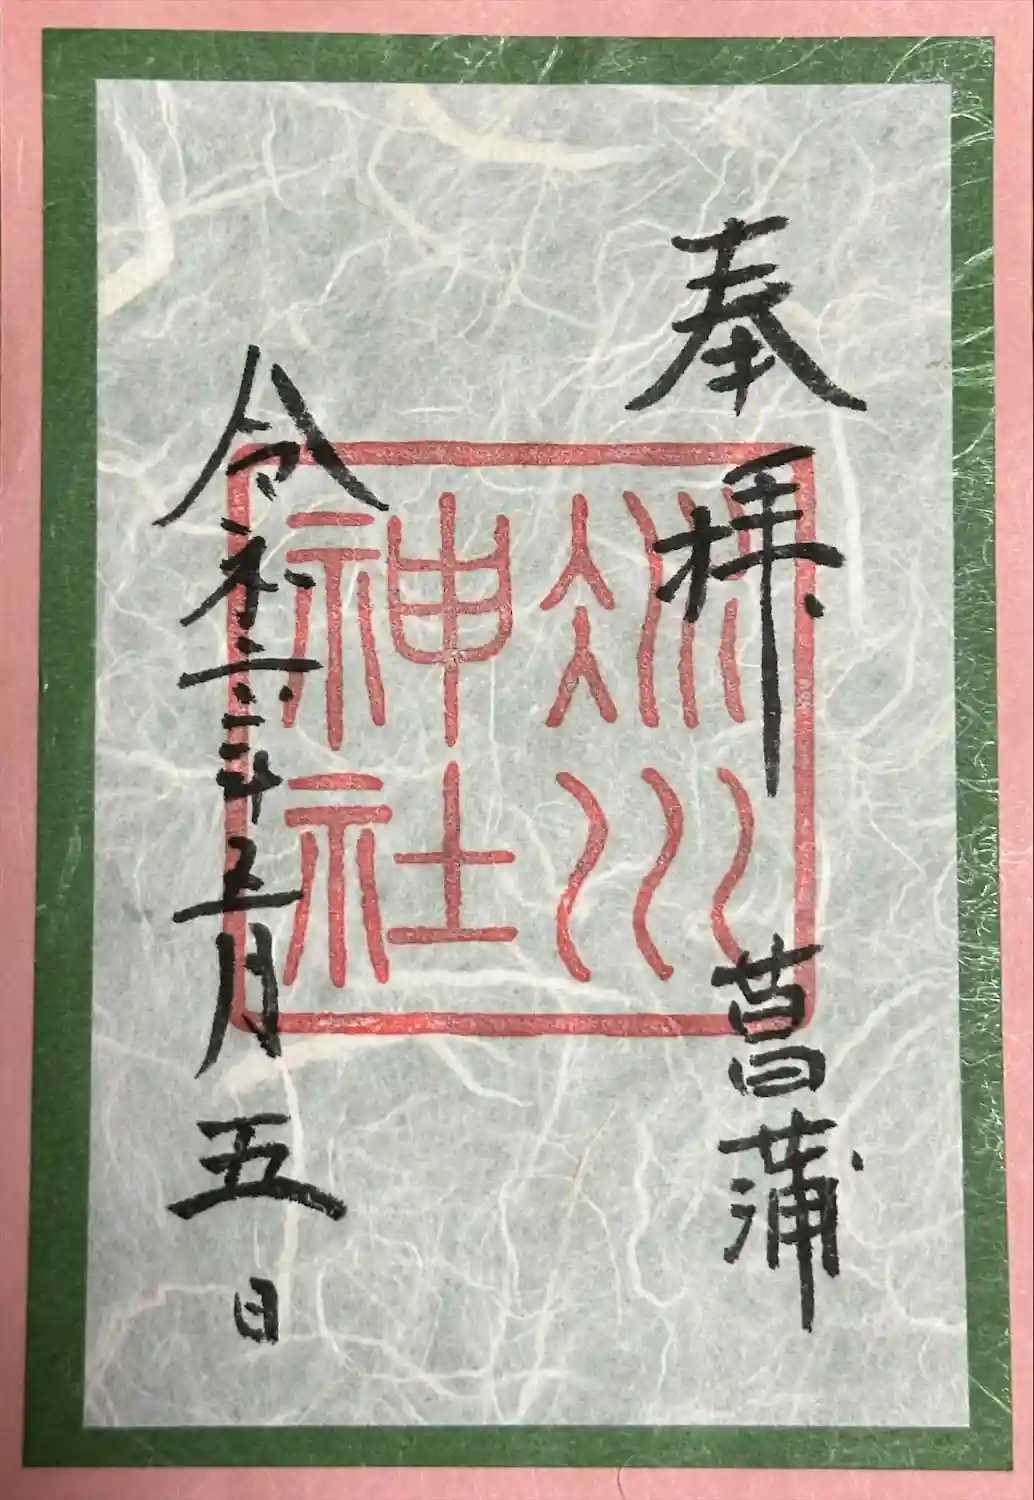 奉拝 菖蒲
冰川
神社
令和六年五月五日